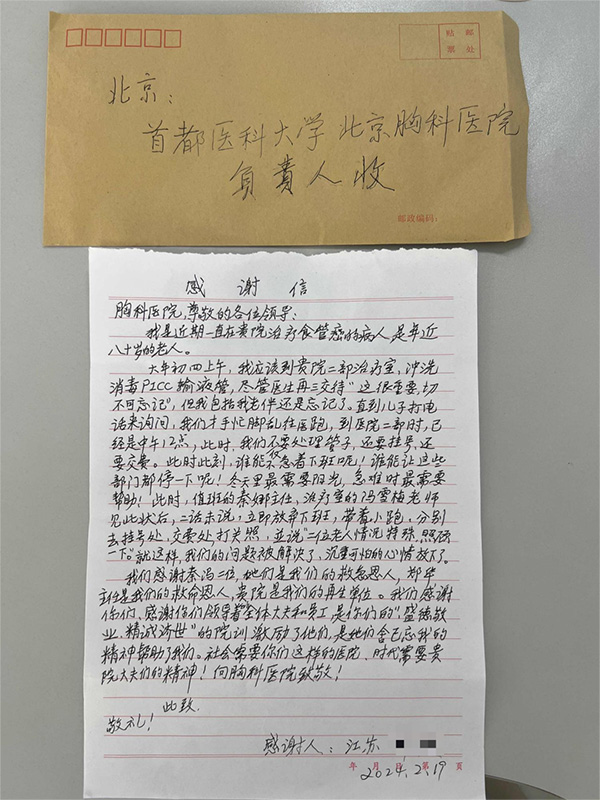 贴 邮
票 处
北京：
首都医科大学北京胸科医院
负责人收
邮政编码：
感 谢 信
胸科医院，尊敬的各位领导：
我是近期一直在贵院治疗食管癌的病人，是年近
八十岁的老人。
大年初四上午，我应该到贵院二部治疗室，冲洗
消毒PICC输液管，尽管医生再三交待“这很重要，切
不可忘记”，但我包括我老伴还是忘记了。直到儿子打电
话来询问，我们才手忙脚乱往医跑，到医院二部时，已
经是中午12点，此时，我们不要处理管子，还要挂号，还
要交费。此时此刻，谁能不急着下班呢！谁能让这些
部门都停一下呢！冬天里最需要阳光，急难时最需要
帮助！此时，值班的秦娜主任，治疗室的冯雪梅老师
见此状后，二话未说，立即放弃下班，带着小跑，分别
去挂号处、交费处打关照，並说“二位老人情况特殊，照顾
一下。”就这样，我们的问题被解决了，沉重可怕的心情放下了。
我们感谢秦冯二位，她们是我们的救急恩人，
主任是我们的救命恩人，贵院是我们的再生单位。我们感谢
你们，感谢你们领导着全体大夫和员工，是你们的“盛德敬
业、精诚济世”的院训激励了他们，是她们舍己忘我的
精神帮助了我们。社会需要你们这样的医院，时代需要贵
院大夫们的精神！向胸科医院致敬！
此致
敬礼！
感谢人：江苏
年 月 日 第 页
2024.2.19